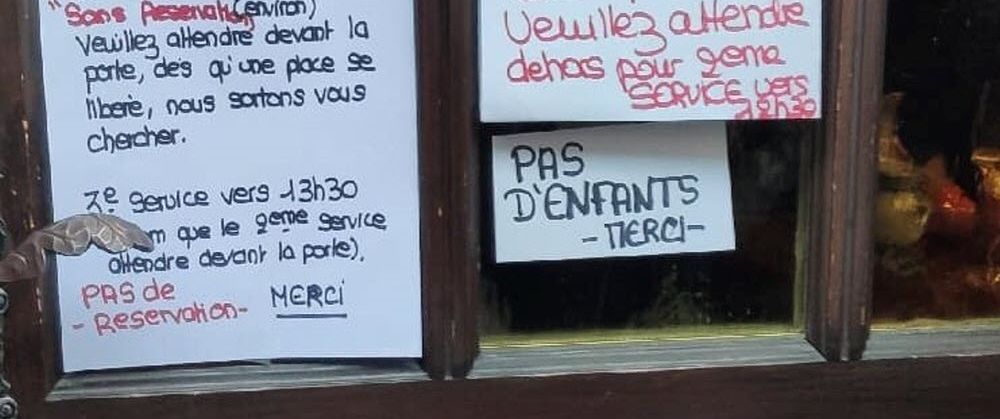 "Sans Reservation (environ)
Veuillez attendre devant la
porte, dès qu'une place se
libère, nous sortons vous
chercher.
3e Service vers 13h30
que le 2eme service
attendre devant la porte).
PAS de MERCI
- Reservation-
Veuillez attendre
dehors pour 2eme
SERVICE vers
12h30
PAS
D'ENFANTS
- MERCI-